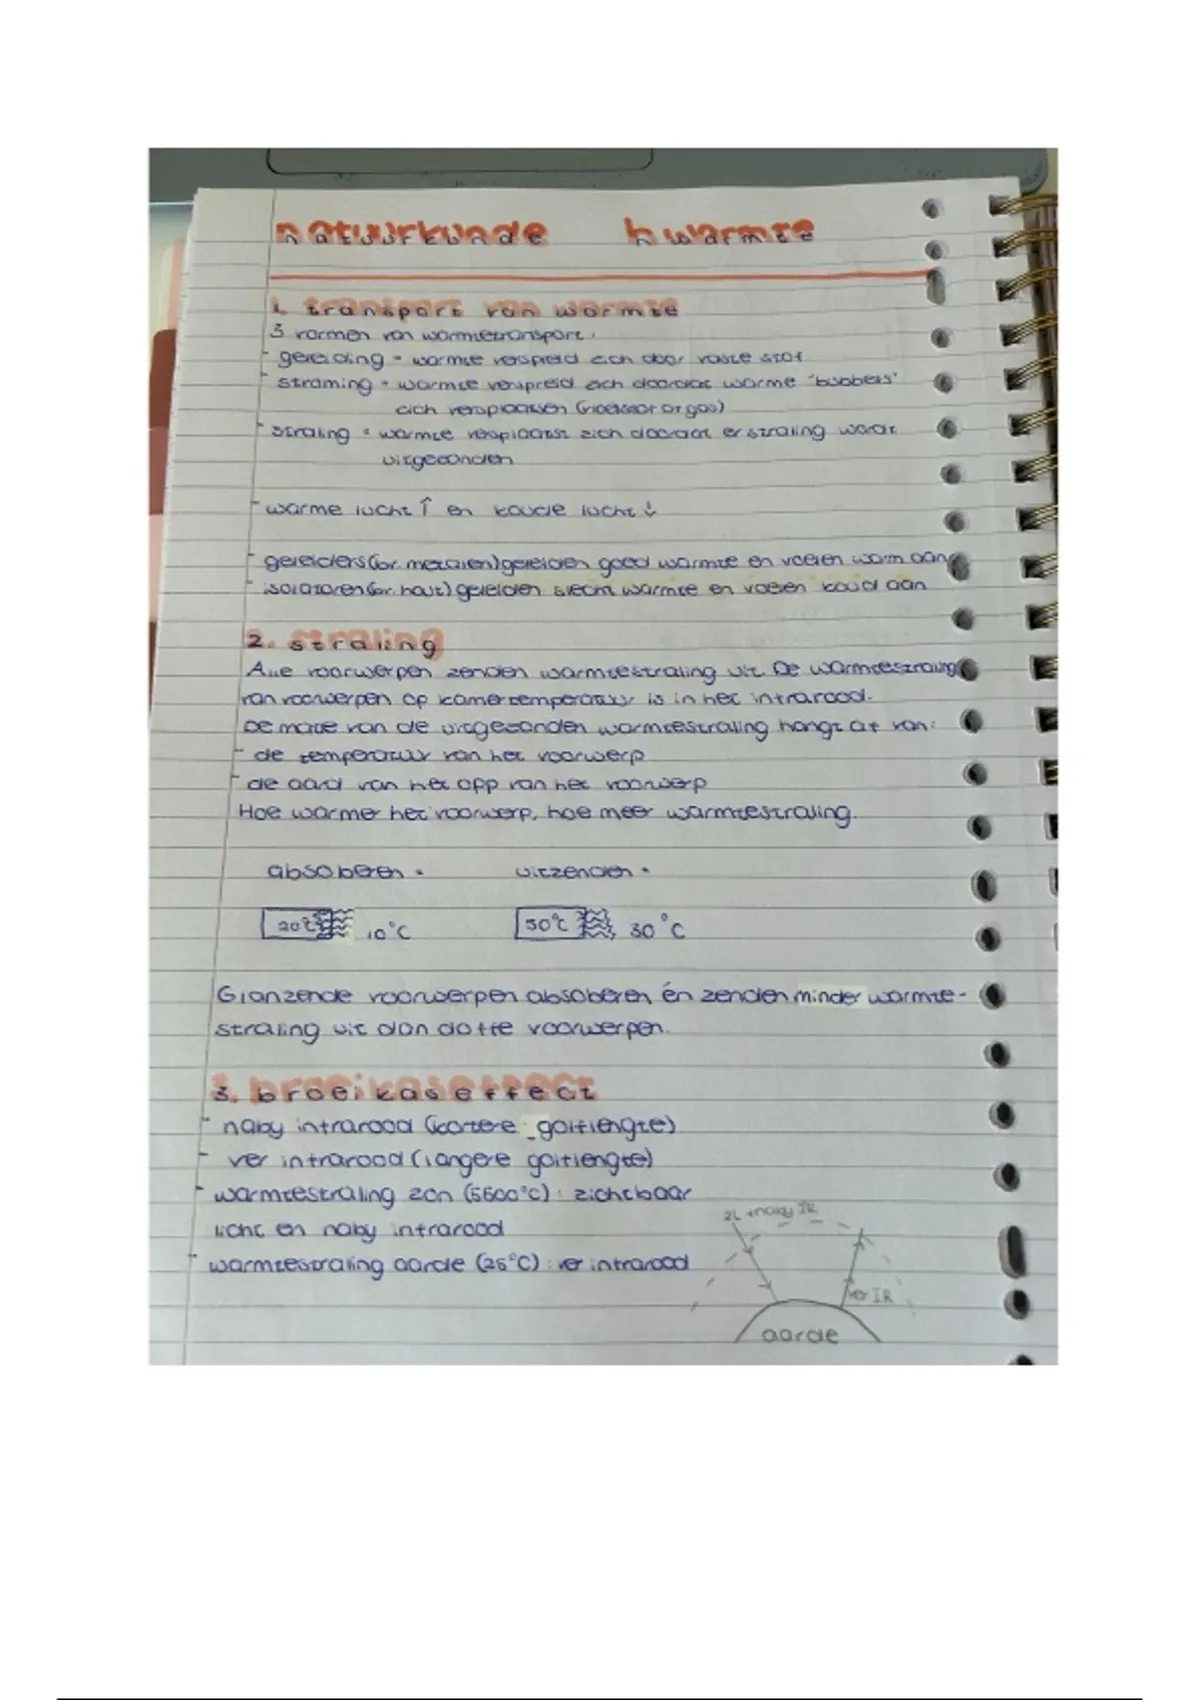 natuurkunde h warmte
1. transport van warmte
3 vormen van warmtetransport:
- geleiding = warmte verspreid zich door vaste stof
- stroming = warmte verspreid zich doordat warme 'bubbels'
zich verplaatsen (vloeistof of gas)
- straling = warmte verplaatst zich doordat er straling wordt
uitgezonden
- warme lucht ↑ en koude lucht ↓
- geleiders (bv. metalen) geleiden goed warmte en voelen warm aan
- isolatoren (bv. hout) geleiden slecht warmte en voelen koud aan
2. straling
Alle voorwerpen zenden warmtestraling uit. De warmtestraling
van voorwerpen op kamertemperatuur is in het infrarood.
De mate van de uitgezonden warmtestraling hangt af van:
- de temperatuur van het voorwerp
- de aard van het opp van het voorwerp
Hoe warmer het voorwerp, hoe meer warmtestraling.
absoberen = uitzenden =
20°C 10°C 50°C 30°C
Glanzende voorwerpen absoberen én zenden minder warmte-
straling uit dan doffe voorwerpen.
3. broeikaseffect
- naby infrarood (kortere golflengte)
- ver infrarood (langere golflengte)
- warmtestraling zon (5600°C): zichtbaar
licht en naby infrarood
- warmtestraling aarde (25°C): ver infrarood
ZL + naby IR
ver IR
aarde